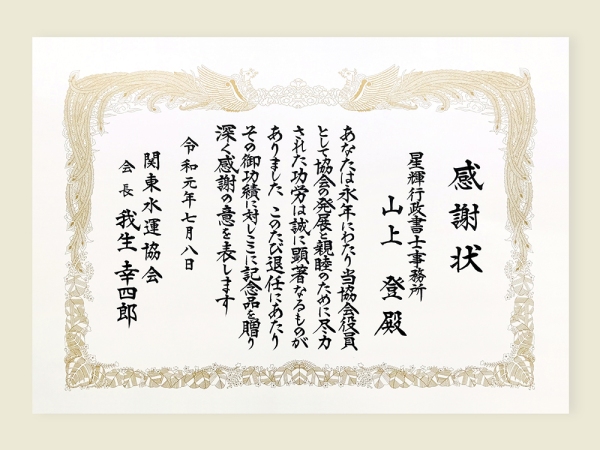 感謝状
星輝行政書士事務所
山上 登 殿
あなたは永年にわたり当協会役員
として協会の発展と親睦のために尽力
された功労は誠に顕著なるものが
ありました このたび退任にあたり
その御功績に対しここに記念品を贈り
深く感謝の意を表します
令和元年七月八日
関東水運協会
会長 我生 幸四郎